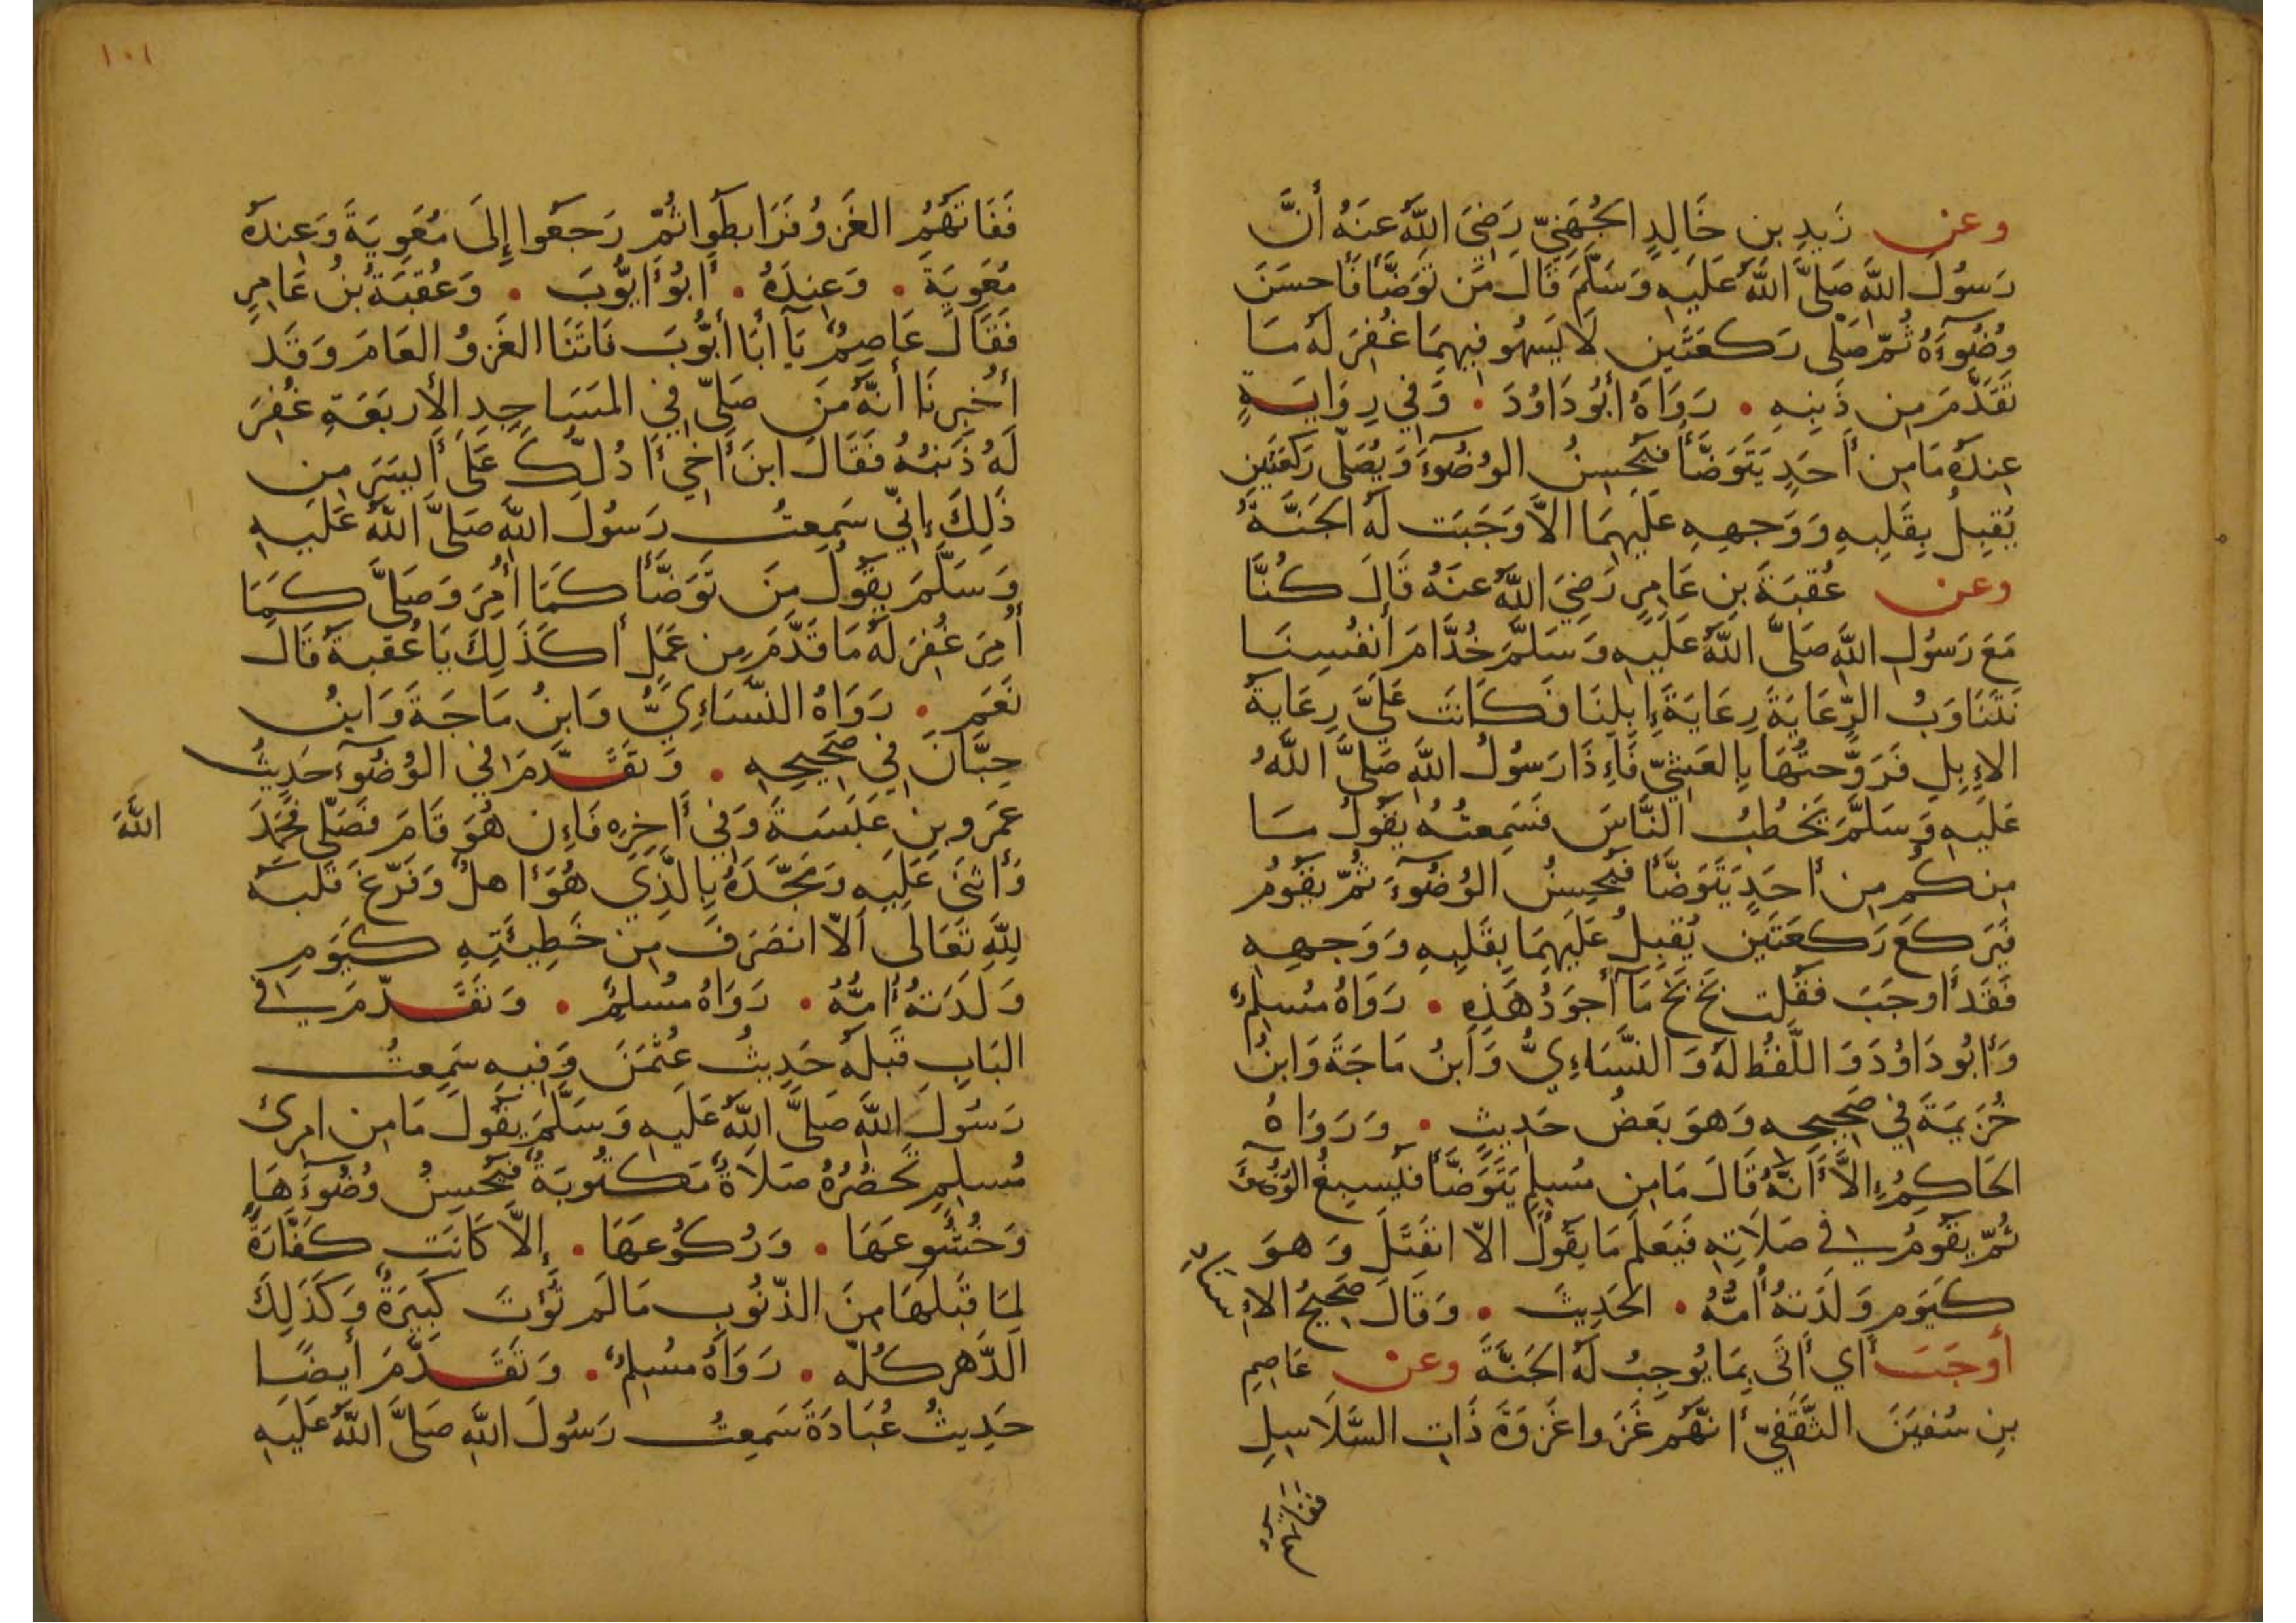 وعن زَيدِ بن خَالِدٍ الجُهَنِيّ رَضِيَ اللَّهُ عَنهُ أنَّ
رَسُولَ اللَّهِ صَلَّى اللَّهُ عَلَيهِ وَسَلَّمَ قَالَ مَن تَوَضَّأَ فَأَحسَنَ
وُضُوٓءَهُ ثُمّ صَلّى رَكعَتَين لَا يَسهُو فِيهِمَا غُفِرَ لَهُ مَا
تَقَدَّمَ مِن ذَنبِهِ • رَوَاهُ أبُو دَاوُدَ • وَفي رِوَايَةٍ
عِندَهُ مَا مِن أَحَدٍ يَتَوَضَّأُ فَيُحسِنُ الوُضُوٓءَ وَيُصَلّى رَكعَتَين
يُقبِلُ بِقَلبِهِ وَوَجهِهِ عَلَيهِمَا الاَّ وَجَبَت لَهُ الجَنَّةُ
وعن عُقبَةَ بنِ عَامِرٍ رَضِيَ اللَّهُ عنهُ قَالَ كُنَّا
مَعَ رَسُولِ اللَّهِ صَلَّى اللَّهُ عَلَيهِ وَسَلَّمَ خُدَّامَ أنفُسِنَا
نَتَنَاوَبُ الرِّعَايَةَ رِعَايَةَ إِبِلِنَا فَكَانَت عَلَيَّ رِعَايَةُ
الإِبِلِ فَرَوَّحتُهَا بِالعَشِيّ فَإِذَا رَسُولُ اللَّهِ صَلَّى اللَّهُ
عَلَيهِ وَسَلَّمَ يَخطُبُ النَّاسَ فَسَمِعتُهُ يَقُولُ مَا
مِنكُم مِن أَحَدٍ يَتَوَضَّأُ فَيُحسِنُ الوُضُوٓءَ ثُمّ يَقُومُ
فَيَركَعُ رَكعَتَين يُقبِلُ عَلَيهِمَا بِقَلبِهِ وَوَجهِهِ
فَقَد أَوجَبَ فَقُلت بَخ بَخ مَآ أَجوَدُ هَذِهِ • رَوَاهُ مُسلِمٌ
وَأَبُو دَاوُدَ وَاللَّفظُ لَهُ وَالنَّسَاءِيُّ وَابنُ مَاجَةَ وَابنُ
خُزَيمَةَ فِي صَحِيحِهِ وَهوَ بَعضُ حَدِيثٍ • وَرَوَاهُ
الحَاكِمُ إِلاَّ أَنَّهُ قَالَ مَا مِن مُسلِمٍ يَتَوَضَّأُ فَيُسبِغُ الوُضُوءَ
ثُمّ يَقُومُ في صَلَاتِهِ فَيَعلَمُ مَا يَقُولُ الاّ انفَتَلَ وَهوَ
كَيَومِ وَلَدَتهُ أُمُّهُ • الحَدِيثَ • وَقَالَ صَحِيحُ الاِسنَادِ
أوجَبَ أَي أَتَى بِمَا يُوجِبُ لَهُ الجَنَّةَ وعن عَاصِمِ
بنِ سُفيَنَ الثَّقَفِيّ أَنَّهُم غَزَوا غَزوَةَ ذَاتِ السَّلَاسِلِ
فَفَاتَهُمُ
فَفَاتَهُمُ الغَزوُ فَرَابَطُوا ثُمّ رَجَعُوا إِلَى مُعَوِيَةَ وَعِندَهُ
مُعَوِيَةَ • وَعِندَهُ • أَبُو أَيُّوبَ • وَعُقبَةُ بنُ عَامِرٍ
فَقَالَ عَاصِمٌ يَآ أبَا أَيُّوبَ فَاتَنَا الغَزوُ العَامَ وَقَد
أُخبِرنَا أنَّهُ مَن صَلّى فِي المَسَاجِدِ الأَربَعَةِ غُفِرَ
لَهُ ذَنبُهُ فَقَالَ ابنَ أَخِي أَدُلُّكَ عَلَى أَيسَرَ مِن
ذَلِكَ إِنّي سَمِعتُ رَسُولَ اللَّهِ صَلَّى اللَّهُ عَلَيهِ
وَسَلَّمَ يَقُولُ مَن تَوَضَّأَ كَمَا أُمِرَ وَصَلَّى كَمَا
أُمِرَ غُفِرَ لَهُ مَا قَدَّمَ مِن عَمَلٍ أَكَذَلِكَ يَا عُقبَةُ قَالَ
نَعَم • رَوَاهُ النَّسَاءِيُّ وَابنُ مَاجَةَ وَابنُ
حِبَّانَ فِي صَحِيحِهِ • وَتَقَدَّمَ في الوُضُوٓءِ حَدِيثُ
عَمرِو بنِ عَبَسَةَ وَفي أَخِرِهِ فَإِن هُوَ قَامَ فَصَلّى فَحَمِدَ اللَّهَ
وَأَثنَى عَلَيهِ وَمَجَّدَهُ بِالَّذِي هُوَ أَهلٌ وَفَرّغَ قَلبَهُ
لِلَّهِ تَعَالَى اَلاّ انصَرَفَ مِن خَطِيئَتِهِ كَيَومِ
وَلَدَتهُ أُمُّهُ • رَوَاهُ مُسلِمٌ • وَتَقَدّمَ في
البَابِ قَبلَهُ حَدِيثُ عُثمَنَ وَفِيهِ سَمِعتُ
رَسُولَ اللَّهِ صَلَّى اللَّهُ عَلَيهِ وَسَلَّمَ يَقُولُ مَا مِن امرِئ
مُسلِمٍ تَحضُرُهُ صَلَاةٌ مَكتُوبَةٌ فَيُحسِنُ وُضُوٓءَهَا
وَخُشُوعَهَا • وَرُكُوعَهَا • إِلاّ كَانَت كَفَّارَةً
لِمَا قَبلَهَا مِنَ الذّنُوبِ مَا لَم تُؤتَ كَبِيرَةٌ وَكَذَلِكَ
الدَّهرَ كُلّهُ • رَوَاهُ مُسلِمٌ • وَتَقَدَّمَ أيضًا
حَدِيثُ عُبَادَةَ سَمِعتُ رَسُولَ اللَّهِ صَلَّى اللَّهُ عَلَيهِ
١٠١